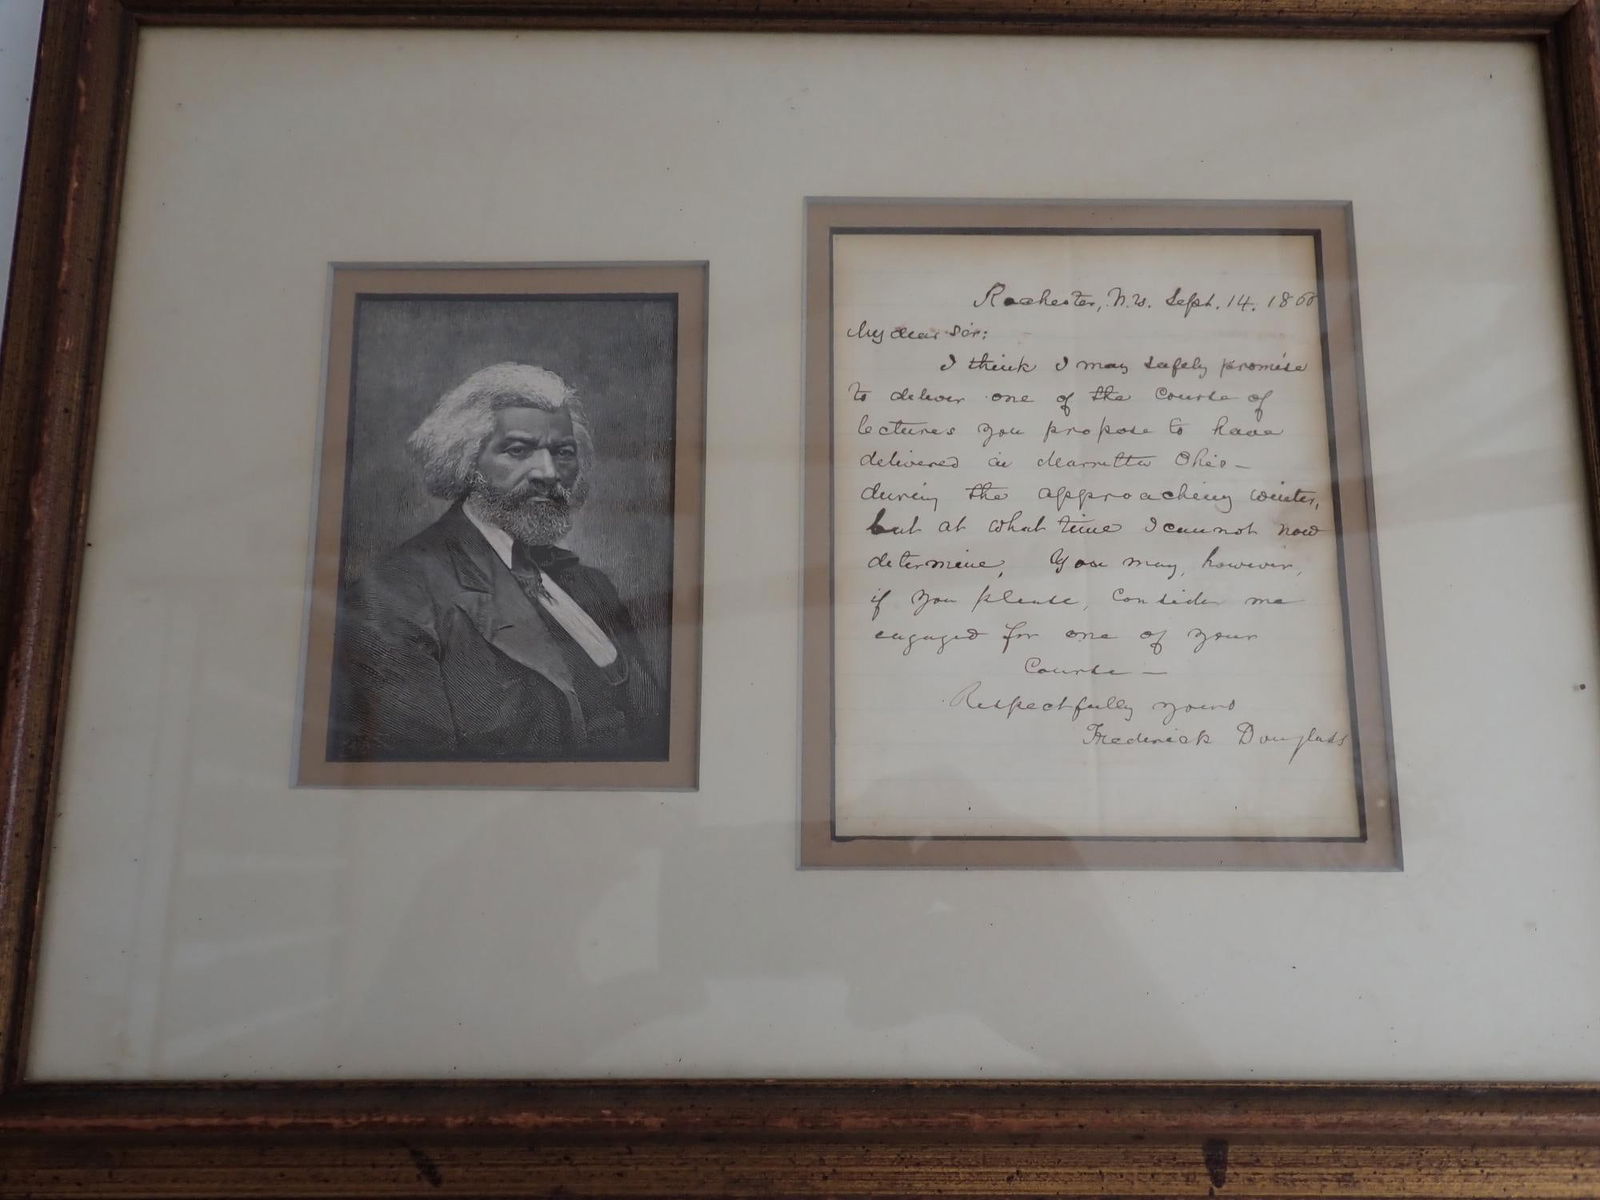 Rochester, N.Y. Sept. 14. 186
My dear Sir:
I think I may safely promise
to deliver one of the Course of
lectures you propose to have
delivered in Marietta Ohio—
during the approaching winter,
but at what time I cannot now
determine. You may, however,
if you please, Consider me
engaged for one of your
Course—
Respectfully yours
Frederick Douglass